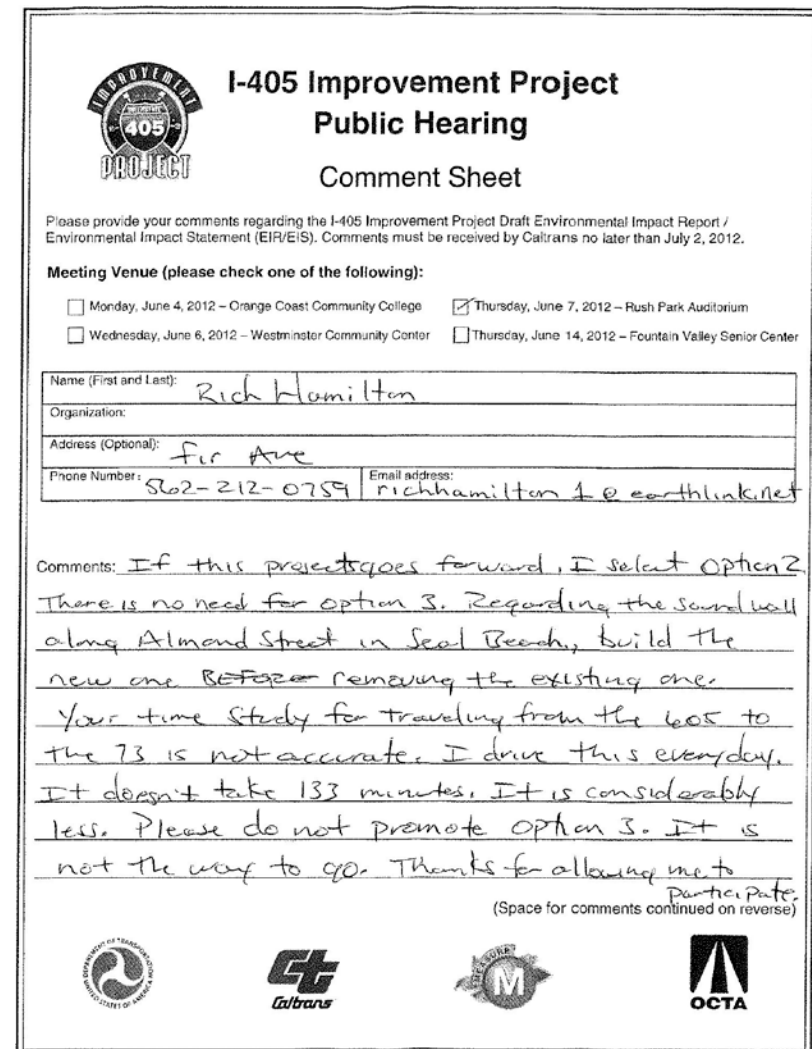 IMPROVEMENT
405
PROJECT
I-405 Improvement Project
Public Hearing
Comment Sheet
Please provide your comments regarding the I-405 Improvement Project Draft Environmental Impact Report /
Environmental Impact Statement (EIR/EIS). Comments must be received by Caltrans no later than July 2, 2012.
Meeting Venue (please check one of the following):
Monday, June 4, 2012 – Orange Coast Community College
Thursday, June 7, 2012 – Rush Park Auditorium
Wednesday, June 6, 2012 – Westminster Community Center
Thursday, June 14, 2012 – Fountain Valley Senior Center
Name (First and Last): Rich Hamilton
Organization:
Address (Optional): Fir Ave
Phone Number: 562-212-0759
Email address: richhamilton1@earthlink.net
Comments: If this projects goes forward, I select Option 2
There is no need for option 3. Regarding the sound wall
along Almond Street in Seal Beach, build the
new one BEFORE removing the existing one.
Your time study for traveling from the 605 to
the 73 is not accurate. I drive this everyday.
It doesn't take 133 minutes. It is considerably
less. Please do not promote Option 3. It is
not the way to go. Thanks for allowing me to
participate.
(Space for comments continued on reverse)
DEPARTMENT OF TRANSPORTATION
UNITED STATES OF AMERICA
Ct
Caltrans
MEASURE
M
OCTA